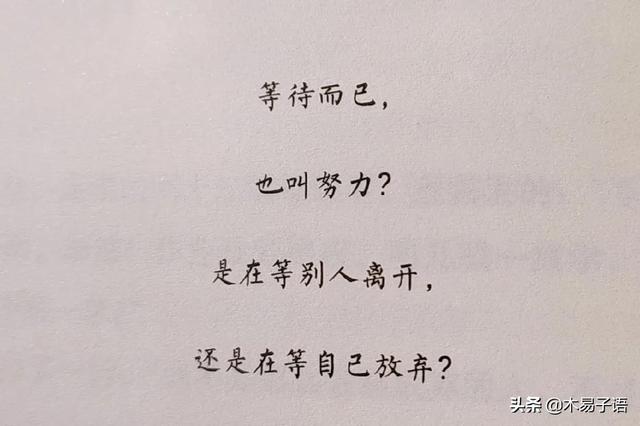 等待而已，
也叫努力？
是在等别人离开，
还是在等自己放弃？
头条 @木易子语